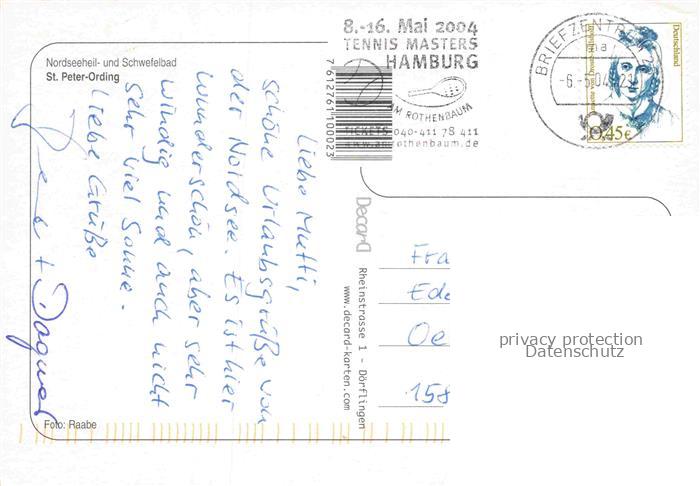 Nordseeheil- und Schwefelbad
St. Peter-Ording
8.-16. Mai 2004
TENNIS MASTERS
HAMBURG
AM ROTHENBAUM
TICKETS 040-411 78 411
www.amrothenbaum.de
7612761100023
BRIEFZENTRUM 2
-6.-5.04
Deutschland
0,45€
Liebe Mutti,
schöne Urlaubsgrüße von
der Nordsee. Es ist hier
wunderschön, aber sehr
windig und auch nicht
sehr viel Sonne.
Liebe Grüße
+ Dagmar
DecarD
Rheinstrasse 1 - Dörflingen
www.decard-karten.com
Fra
Ede
Oe
158
privacy protection
Datenschutz
Foto: Raabe